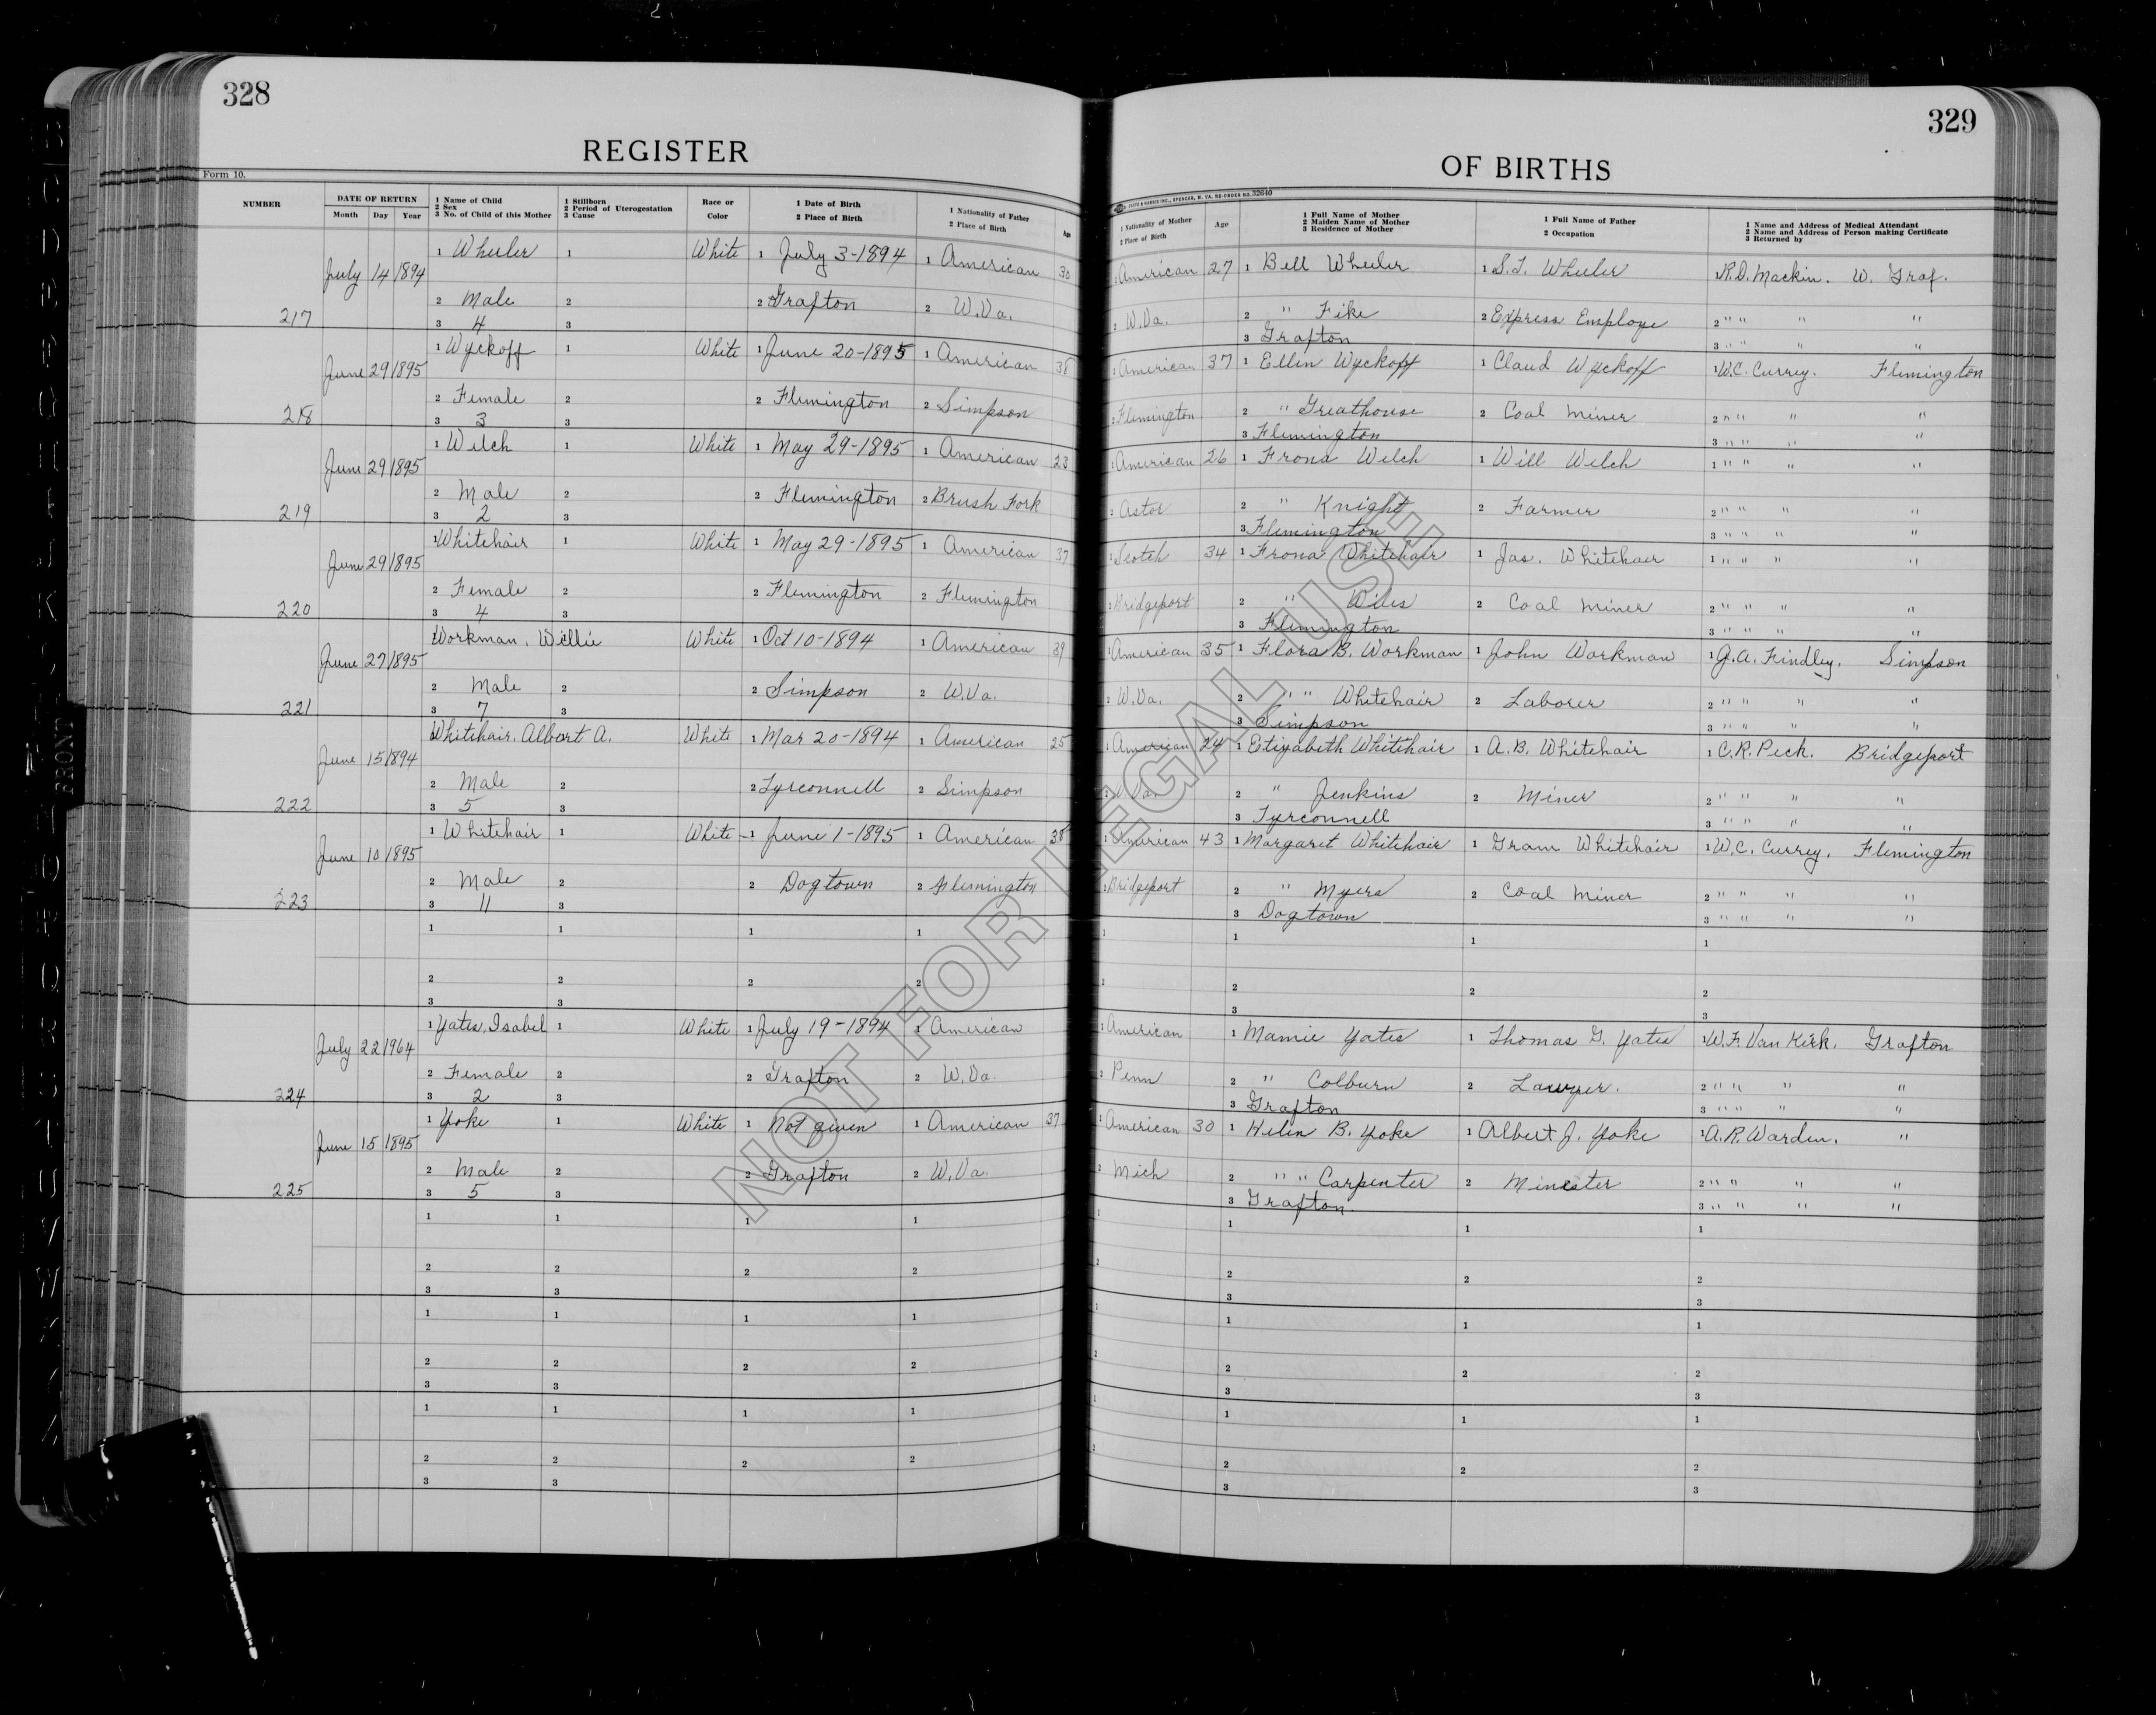 328
REGISTER
Form 10.
NUMBER
DATE OF RETURN
Month Day Year
1 Name of Child
2 Sex
3 No. of Child of this Mother
1 Stillborn
2 Period of Uterogestation
3 Cause
Race or
Color
1 Date of Birth
2 Place of Birth
1 Nationality of Father
2 Place of Birth
Age
July 14 1894 1 Wheeler 1 White 1 July 3-1894 1 American 30
2 Male 2 2 Grafton 2 W.Va.
217 3 4 3
June 29 1895 1 Wyckoff 1 White 1 June 20-1895 1 American 38
2 Female 2 2 Flemington 2 Simpson
218 3 3 3
June 29 1895 1 Welch 1 White 1 May 29-1895 1 American 23
2 Male 2 2 Flemington 2 Brush Fork
219 3 2 3
June 29 1895 1 Whitehair 1 White 1 May 29-1895 1 American 37
2 Female 2 2 Flemington 2 Flemington
220 3 4 3
June 27 1895 Workman, Willie White 1 Oct 10-1894 1 American 39
2 Male 2 2 Simpson 2 W.Va.
221 3 7 3
June 15 1894 Whitehair, Albert A. White 1 Mar 20-1894 1 American 25
2 Male 2 2 Tyrconnell 2 Simpson
222 3 5 3
June 10 1895 1 Whitehair 1 White 1 June 1-1895 1 American 38
2 Male 2 2 Dogtown 2 Flemington
223 3 11 3
1 1 1 1
2 2 2 2
3 3
July 22 1964 1 Yates, Isabel 1 White 1 July 19-1894 1 American
2 Female 2 2 Grafton 2 W.Va.
224 3 2 3
June 15 1895 1 Yoke 1 White 1 Not given 1 American 37
2 Male 2 2 Grafton 2 W.Va.
225 3 5 3
1 1 1 1
2 2 2 2
3 3
1 1 1 1
2 2 2 2
3 3
1 1 1 1
2 2 2 2
3 3
329
OF BIRTHS
1 Nationality of Mother
2 Place of Birth
Age
1 Full Name of Mother
2 Maiden Name of Mother
3 Residence of Mother
1 Full Name of Father
2 Occupation
1 Name and Address of Medical Attendant
2 Name and Address of Person making Certificate
3 Returned by
1 American 27 1 Bell Wheeler 1 S.T. Wheeler 1 R.D. Mackin. W. Graf.
2 W.Va. 2 " Fike 2 Express Employe 2 " " " "
3 Grafton 3 " " " "
1 American 37 1 Ellen Wyckoff 1 Claud Wyckoff 1 W.C. Currey. Flemington
2 Flemington 2 " Greathouse 2 Coal Miner 2 " " " "
3 Flemington 3 " " " "
1 American 26 1 Frona Welch 1 Will Welch 1 " " " "
2 Astor 2 " Knight 2 Farmer 2 " " " "
3 Flemington 3 " " " "
1 Scotch 34 1 Frona Whitehair 1 Jas. Whitehair 1 " " " "
2 Bridgeport 2 " Wiles 2 Coal Miner 2 " " " "
3 Flemington 3 " " " "
1 American 35 1 Flora B. Workman 1 John Workman 1 J.A. Findley. Simpson
2 W.Va. 2 " " Whitehair 2 Laborer 2 " " " "
3 Simpson 3 " " " "
1 American 24 1 Elizabeth Whitehair 1 A.B. Whitehair 1 C.R. Peck. Bridgeport
2 W.Va. 2 " Jenkins 2 Miner 2 " " " "
3 Tyrconnell 3 " " " "
1 American 43 1 Margaret Whitehair 1 Gram Whitehair 1 W.C. Currey. Flemington
2 Bridgeport 2 " Myers 2 Coal Miner 2 " " " "
3 Dogtown 3 " " " "
1 1 1 1
2 2 2 2
3 3
1 American 1 Mamie Yates 1 Thomas G. Yates 1 W.F. Van Kirk. Grafton
2 Penn 2 " Colburn 2 Lawyer. 2 " " " "
3 Grafton 3 " " " "
1 American 30 1 Helen B. Yoke 1 Albert J. Yoke 1 A.R. Warden. "
2 Mich 2 " " Carpenter 2 Minester 2 " " " "
3 Grafton. 3 " " " "
1 1 1 1
2 2 2 2
3 3
1 1 1 1
2 2 2 2
3 3
1 1 1 1
2 2 2 2
3 3
NOT FOR LEGAL USE
FRONT